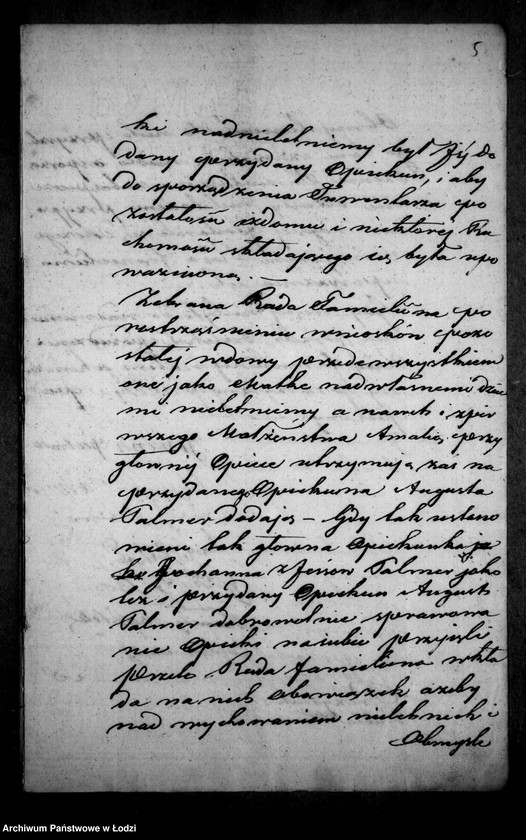 5
ki nadnieletniemy był Jéj do
dany przydany Opiekun, i aby
do sporządzenia Inwentarza po
zostałości zdomu i niektorej Ru
chomości składającego się była upo
ważniona. —
Zebrana Rada Familiina po
roztrząśnieniu wniosków pozo
stałej wdowy przedewszystkiem
onę jako matkę nadwłasnemi dzie
mi nieletniemy a nawet i zpier
wszego Małżeństwa Amalią, przy
głownej Opiece utrzymują, zas na
przydanego Opiekuna Augusta
Talmer dodają — Gdy tak ustano
wieni tak głowna Opiekunka
Johanna z Jesson Talmer jako
też i przydany Opiekun August
Talmer dobrowolnie sprawowa
nie Opieki nasiebie przyjeli
przeto Rada Familiina wkła
da na nich obowiązek azeby
nad wychowaniem nieletnich i
Obmyśle
Archiwum Państwowe w Łodzi